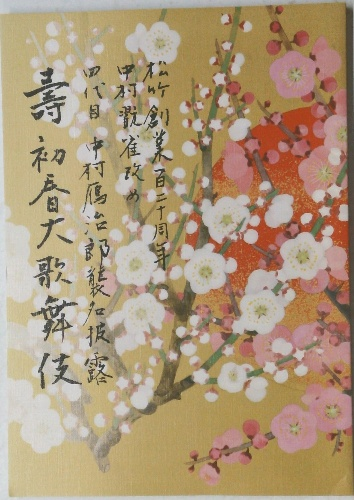 松竹創業百二十周年
中村翫雀改め
四代目 中村鴈治郎襲名披露
壽 初春大歌舞伎